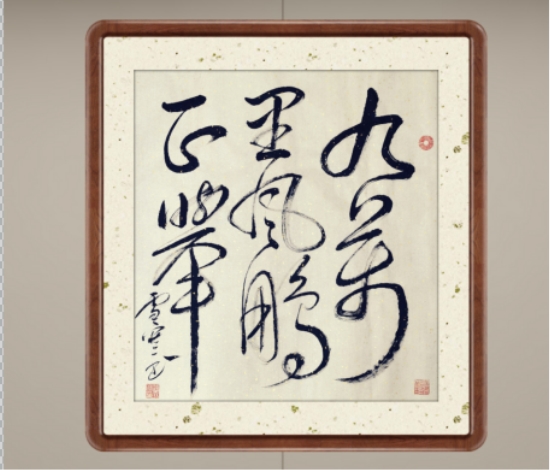 九万
里风鹏
正举